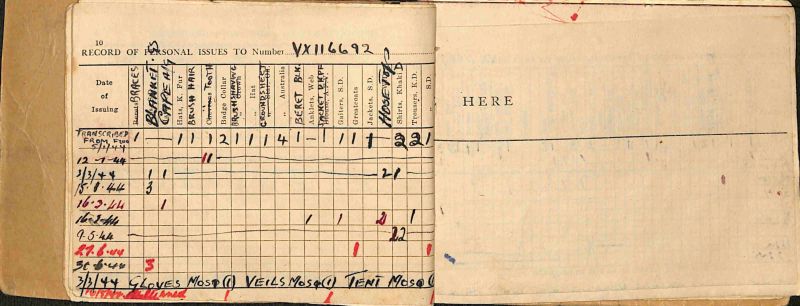 10
RECORD OF PERSONAL ISSUES TO Number VX116692
Date of Issuing
BRACES
BLANKETSS
CAPE A/G
Hats, K. Fur
BRUSH HAIR
TOOTH
Badge Collar
BRUSH SHAVING
„ Hat
GROUNDSHEET
„ Australia
BERET BLK.
Anklets, Web
JACKET
Gaiters, S.D.
Greatcoats
Jackets, S.D.
HOSE TOPS
Shirts, Khaki D
Trousers, K.D.
„ S.D.
HERE
TRANSCRIBED 1 — — 1 1 1 2 1 1 1 4 1 — 1 1 1 1 2 2 1
FROM
12-1-44 11
3/3/44 1 1 2 1
15.8.44 3
16-3-44 1
16-2-44 1 1 2 1
9.5.44 22
27.6.44 1 1
30-6-44 3
3/3/44 GLOVES MOSQ (1) VEILS MOSQ (1) TENT MOSQ (1
1 1 1